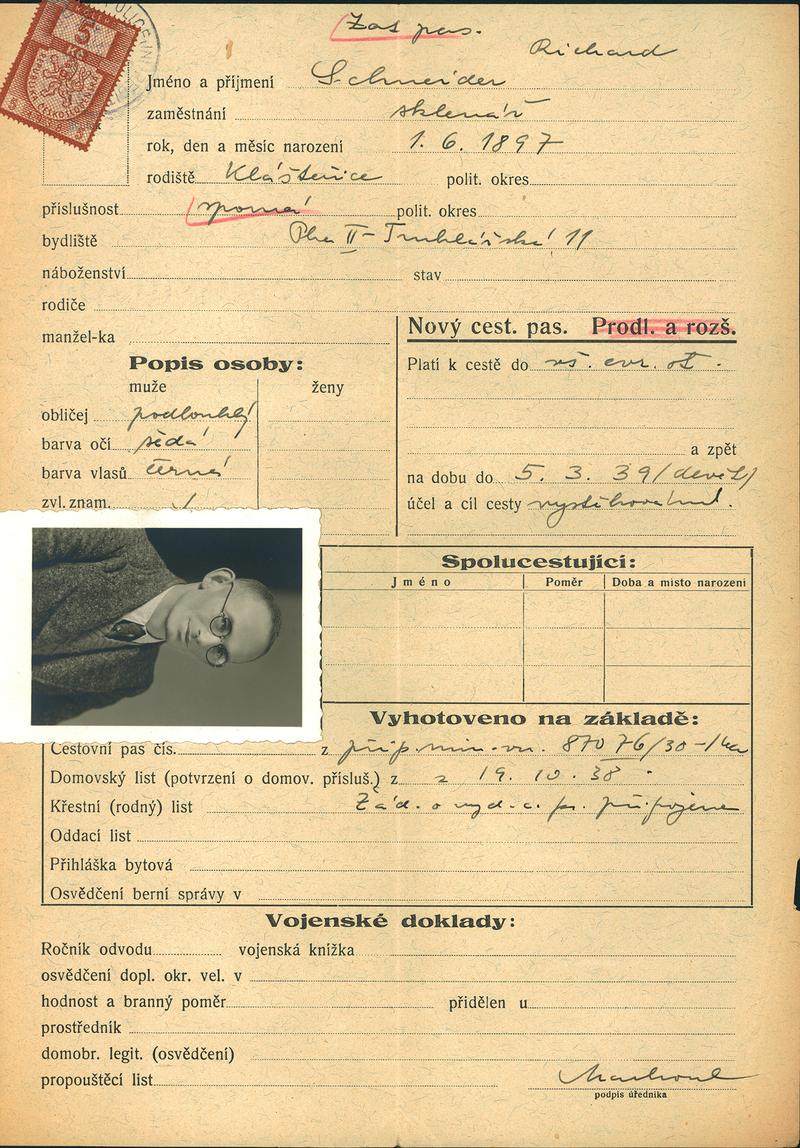 Zat. pas.
5
Kč
Richard
Jméno a příjmení Schneider
zaměstnání sklenář
rok, den a měsíc narození 1. 6. 1897
rodiště Klášteřice polit. okres
příslušnost sporná polit. okres
bydliště Pha II – Truhlářská 11
náboženství stav
rodiče
manžel-ka
Nový cest. pas. Prodl. a rozš.
Popis osoby:
muže ženy
obličej podlouhlý
barva očí šedá
barva vlasů černá
zvl. znam.
Platí k cestě do vš. evr. st.
a zpět
na dobu do 5. 3. 39
účel a cíl cesty vystěhování.
Spolucestující:
Jméno Poměr Doba a místo narození
Vyhotoveno na základě:
Cestovní pas čís. z příp. min. vn. 87076/38
Domovský list (potvrzení o domov. přísluš.) z z 19. 10. 38.
Křestní (rodný) list Žád. o vyd. c. p. připojena
Oddací list
Přihláška bytová
Osvědčení berní správy v
Vojenské doklady:
Ročník odvodu vojenská knížka
osvědčení dopl. okr. vel. v
hodnost a branný poměr přidělen u
prostředník
domobr. legit. (osvědčení)
propouštěcí list
podpis úředníka